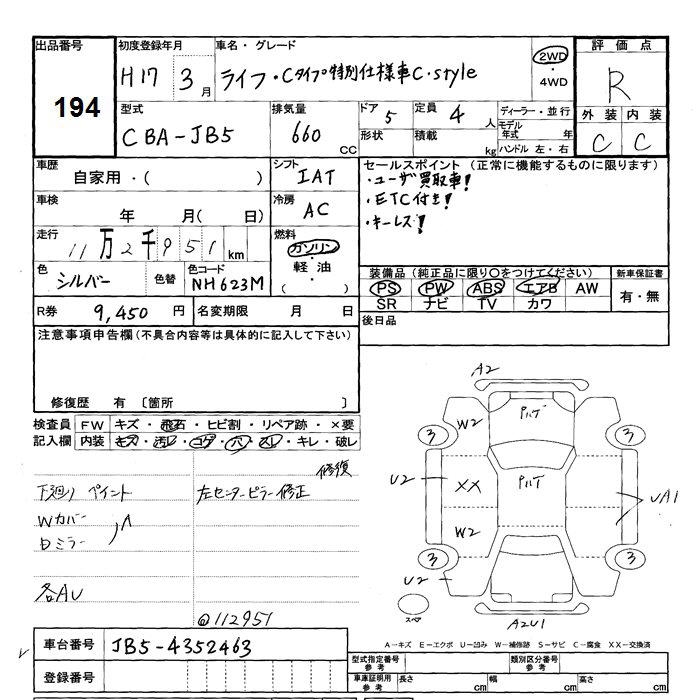 出品番号 初度登録年月 車名・グレード 評価点
194 H17 3月 ライフ・Cタイプ特別仕様車C・style 2WD・4WD R
型式 排気量 ドア 5 定員 4人 ディーラー・並行 外装 内装
CBA-JB5 660 CC 形状 積載 kg モデル年式 年 ハンドル 左・右 C C
車歴 シフト セールスポイント (正常に機能するものに限ります)
自家用・( ) IAT ・ユーザ買取車!
車検 冷房 ・ETC付き!
年 月( 日) AC ・キーレス!
走行 燃料
11万2千951km ガソリン・軽油・( )
色 シルバー 色替 色コード NH623M
装備品 (純正品に限り○をつけてください) 新車保証書
PS PW ABS エアB AW 有・無
SR ナビ TV カワ
R券 9,450円 名変期限 月 日 後日品
注意事項申告欄(不具合内容等は具体的に記入して下さい)
修復歴 有 〔箇所 〕
検査員 FW キズ・飛石・ヒビ割・リペア跡・×要
記入欄 内装 キズ・汚レ・コゲ・穴・スレ・キレ・破レ
修復
下廻り ペイント 左センターピラー修正
Wカバー
Dミラー
各AU
@112951
A2
W2 アルデ
3 3
U2 XX アルデ UA1
W2
3 3
U2
スペア A2U1
車台番号 JB5-4352463
A-キズ E-エクボ U-凹み W-補修跡 S-サビ C-腐食 XX-交換済
登録番号
型式指定番号 参考 類別区分番号 参考
車庫証明用 参考 長さ cm 幅 cm 高さ cm